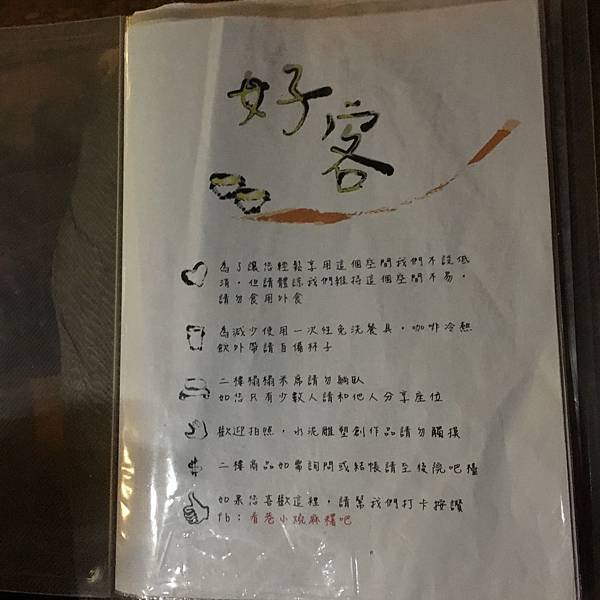 好客
為了讓您輕鬆享用這個空間我們不設低
消，但請體諒我們維持這個空間不易，
請勿食用外食
為減少使用一次性免洗餐具，咖啡冷熱
飲外帶請自備杯子
二樓榻榻米席請勿躺臥
如您只有少數人請和他人分享座位
歡迎拍照，水泥雕塑創作品請勿觸摸
二樓商品如需詢問或結帳請至後院吧檯
如果您喜歡這裡，請幫我們打卡按讚
fb：看巷小燒麻糬吧